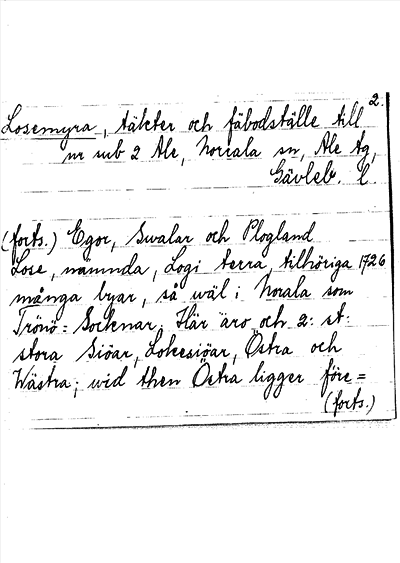 2.
Losemyra, täkter och fäbodställe till
nr sub 2 Ale, Norrala sn, Ale tg,
Gävleb. l.
(forts.) Egor, Swalar och Plogland
Lose, nämnda, Logi terra, tilhöriga 1726
många byar, så wäl i Norala som
Trönö = Socknar. Här äro och 2: st:
stora Siöar, Losesiöar, Östra och
Wästra; wid then Östra ligger före =
(forts.)